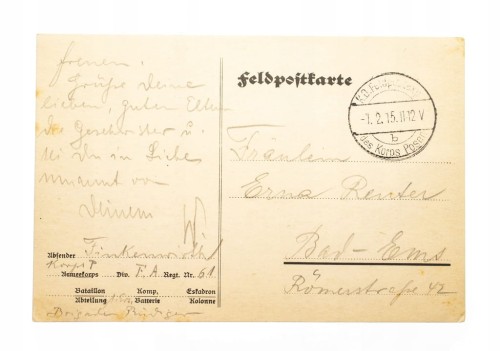 freuen.
Grüße Deine
lieben, guten Eltern
die Geschwister u.
sei Du in Liebe
umarmt von
Deinem W
Absender Finkenwirth
Korps P.
Armeekorps Div. F. A. Regt. Nr. 61
Bataillon Komp. Eskadron
Abteilung Batterie Kolonne
Brigade Rüdiger
Feldpostkarte
K.D. Feldpost
-7. 2. 15. 11-12 V
b
des Korps Posen
Fräulein
Erna Reuter
Bad-Ems
Römerstraße 42